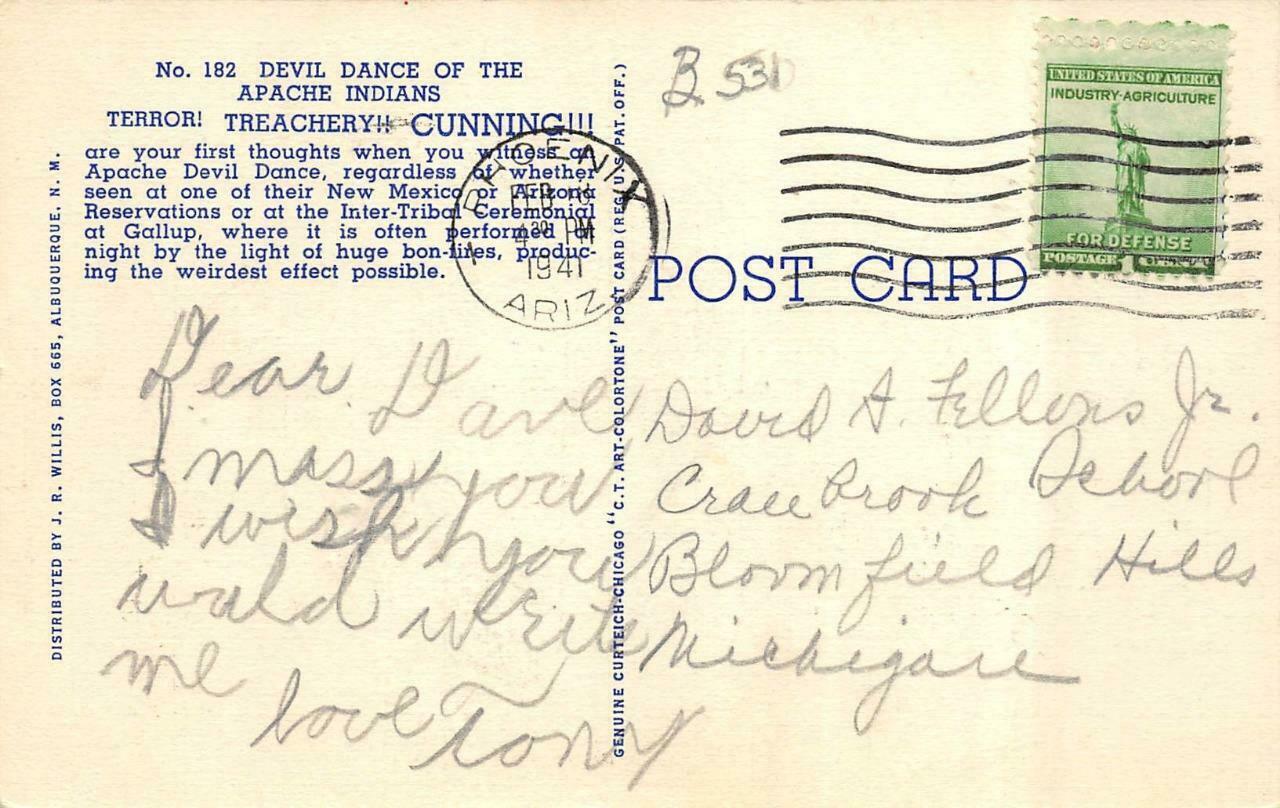 No. 182 DEVIL DANCE OF THE
APACHE INDIANS
TERROR! TREACHERY!! CUNNING!!!
are your first thoughts when you witness an
Apache Devil Dance, regardless of whether
seen at one of their New Mexico or Arizona
Reservations or at the Inter-Tribal Ceremonial
at Gallup, where it is often performed at
night by the light of huge bon-fires, produc-
ing the weirdest effect possible.
DISTRIBUTED BY J. R. WILLIS, BOX 665, ALBUQUERQUE, N. M.
Dear Dave
I miss you
I wish you
wuld write
me
love Tony
GENUINE CURTEICH-CHICAGO "C.T. ART-COLORTONE" POST CARD (REG. U.S. PAT. OFF.)
B 531
PHOENIX
FEB
4 30 PM
1941
ARIZ.
UNITED STATES OF AMERICA
INDUSTRY-AGRICULTURE
FOR DEFENSE
POSTAGE 1
POST CARD
David A. Fellons Jr.
Crane Brook School
Bloomfield Hills
Michigan